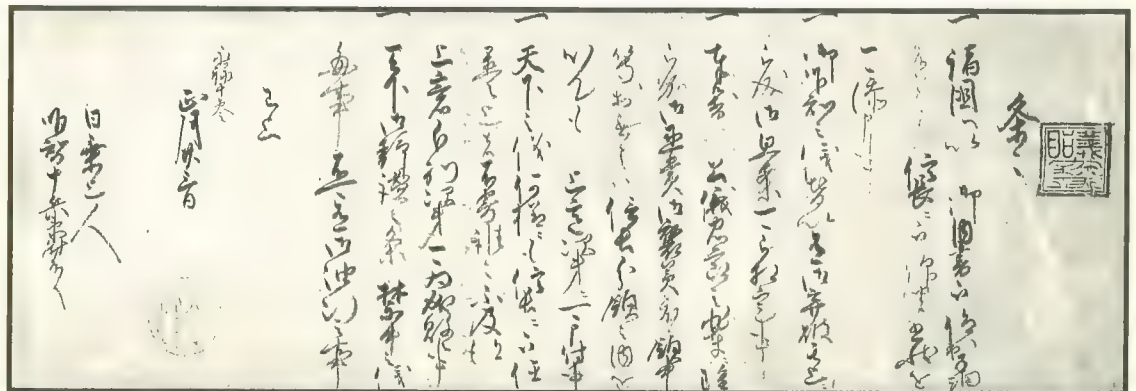 条々
一 諸国へ以 御内書被仰出子細
有之者 信長ニ被仰聞 書状を
可添申事
一 御下知之儀皆以有御棄破其上
被成御思案可被相定事
一 奉対 公儀忠節之輩雖
被加御恩賞御褒美度候領中
等於無之ハ信長分領之内を
以ても 上意次第ニ可申付事
一 天下之儀何様ニも信長ニ被任
置之上者不寄誰々不及得
上意分別次第可為成敗事
一 天下御静謐之条禁中之儀
毎事不可有御油断之事
已上
永禄十参
正月廿三日
日乗上人
明智十兵衛尉殿